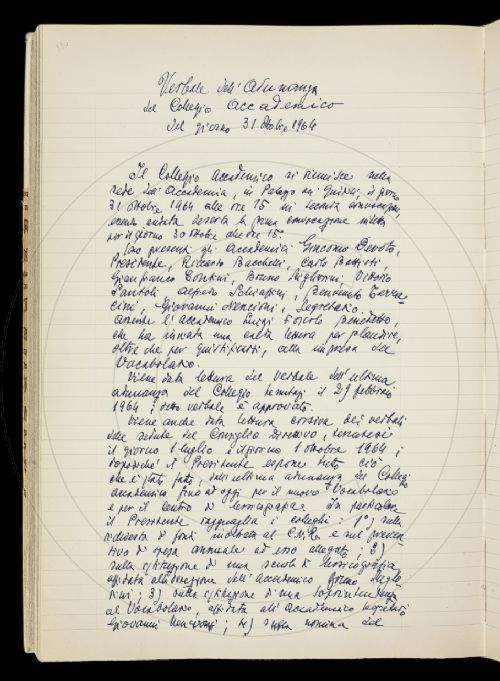 Verbale dell'Adunanza
del Collegio Accademico
del giorno 31 Ottobre 1964
Il Collegio Accademico si riunisce nella
sede dell'Accademia, in Palazzo dei Giudici, il giorno
31 ottobre 1964 alle ore 15 in seconda convocazione,
essendo andata deserta la prima convocazione indetta
per il giorno 30 ottobre alle ore 15.
Sono presenti gli Accademici Giacomo Devoto,
Presidente, Riccardo Bacchelli, Carlo Battisti
Gianfranco Contini, Bruno Migliorini, Vittorio
Santoli, Alfredo Schiaffini, Benvenuto Terra-
cini, Giovanni Nencioni, Segretario.
Assente l'Accademico Luigi Foscolo Benedetto,
che ha inviato una lettera per plaudire,
oltre che per giustificarsi, alla impresa del
Vocabolario.
Viene data lettura del verbale dell'ultima
adunanza del Collegio tenutasi il 29 febbraio
1964; detto verbale è approvato.
Viene anche data lettura corsiva dei verbali
delle sedute del Consiglio Direttivo, tenutesi
il giorno 1 luglio e il giorno 1 ottobre 1964;
dopodiché il Presidente espone tutto ciò
che è stato fatto dall'ultima adunanza del Collegio
accademico fino ad oggi per il nuovo Vocabolario
e per il Centro di lessicografia. In particolare
il Presidente ragguaglia i colleghi: 1°) sulla
richiesta di fondi inoltrata al C.N.R. e sul preven-
tivo di spesa annuale ad essa allegato; 2)
sulla istituzione di una scuola di lessicografia,
affidata alla direzione dell'Accademico Bruno Miglio-
rini; 3) sulla istituzione di una Soprintendenza
al Vocabolario, affidata all'Accademico Segretario
Giovanni Nencioni; 4) sulla nomina del